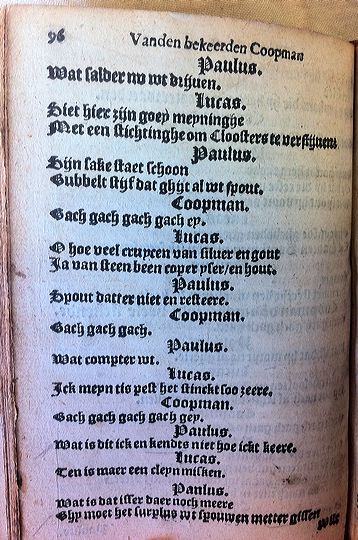 96 Vanden bekeerden Coopman
Paulus.
Wat salder nv wt drijuen.
Lucas.
Siet hier zijn goey meyninghe
Met een stichtinghe om Cloosters te verstijuen.
Paulus.
Sijn sake staet schoon
Gubbelt stijf dat ghijt al wt spout.
Coopman.
Gach gach gach gach ey.
Lucas.
O hoe veel cruycen van siluer en gout
Ja van steen been coper yser/en hout.
Paulus.
Spout datter niet en resteere.
Coopman.
Gach gach gach.
Paulus.
Wat compter wt.
Lucas.
Ick meyn tis pest het stinckt soo zeere.
Coopman.
Gach gach gach gach gey.
Paulus.
Wat is dit ick en kendts niet hoe ickt keere.
Lucas.
Ten is maer een cleyn misken.
Paulus.
Wat is dat isser daer noch meere
Ghy moet het surplus wt spouwen metter gissen